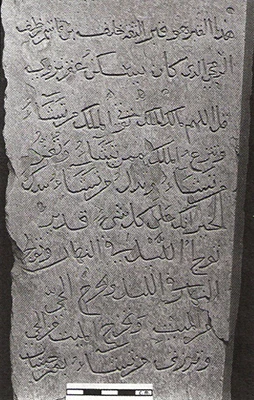 هذا القبر هو قبر
الذي كان
قل اللهم مالك الملك تؤتي الملك من تشاء
وتنزع الملك ممن تشاء وتعز
من تشاء وتذل من تشاء بيدك
الخير انك على كل شيء قدير
تولج الليل في النهار وتولج
النهار في الليل وتخرج الحي
من الميت وتخرج الميت من الحي
وترزق من تشاء بغير حساب